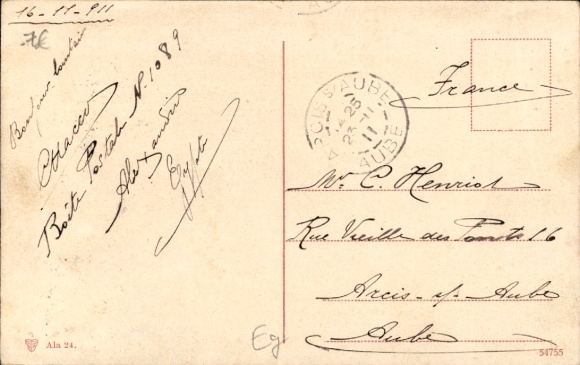 16-11-911
7€
Bonjour lointain
Boîte Postale No. 1089
Alexandrie
Egypte
France
ARCIS S/AUBE
14 25
23-11
11
AUBE
Mr. C. Henriot
Rue Vieille des Ponts 16
Arcis-s/-Aube
Aube
Eg
Ala 24.
54755